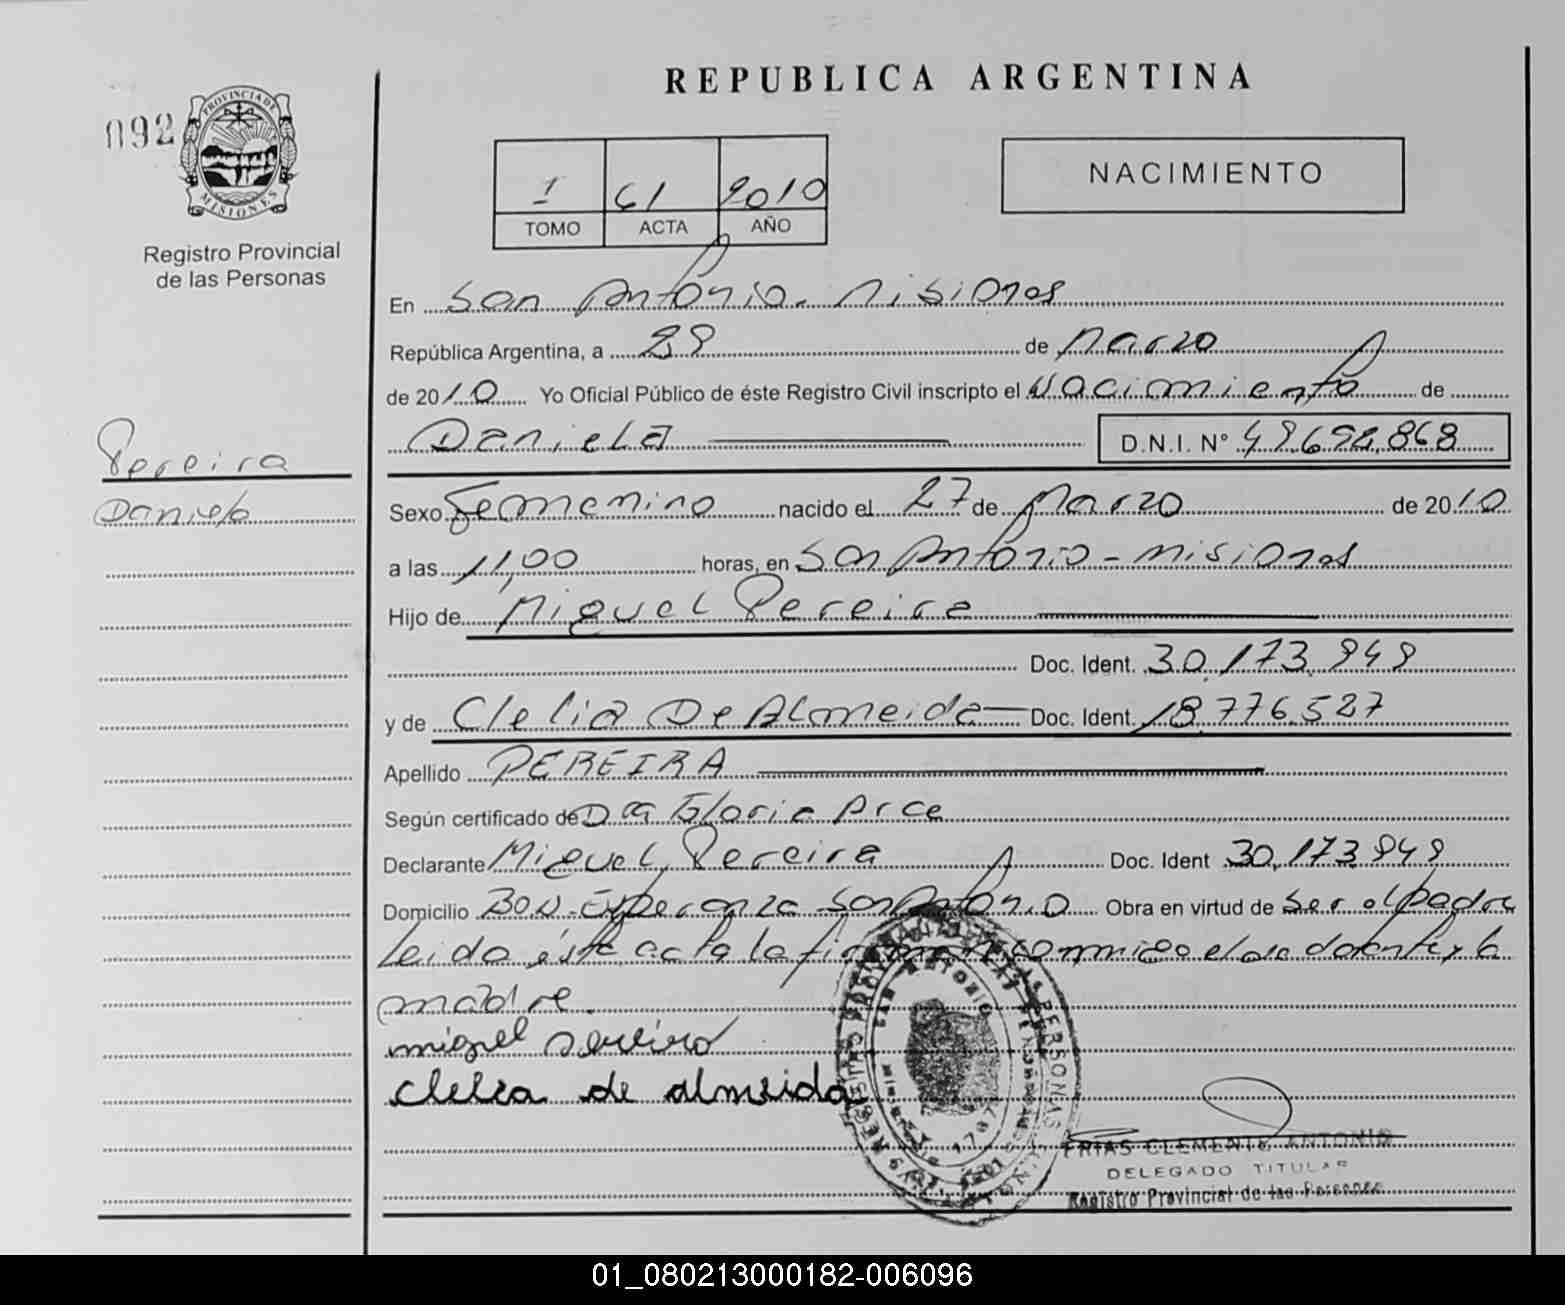 REPUBLICA ARGENTINA
092
PROVINCIA DE
MISIONES
Registro Provincial
de las Personas
1 61 2010
TOMO ACTA AÑO
NACIMIENTO
En San Antonio. Misiones
República Argentina, a 29 de Marzo
de 2010 Yo Oficial Público de éste Registro Civil inscripto el Nacimiento de
Daniela D.N.I. Nº 49.694.868
Pereira
Daniela
Sexo Femenino nacido el 27 de Marzo de 2010
a las 11,00 horas, en San Antonio - Misiones
Hijo de Miguel Pereira
Doc. Ident. 30.173.949
y de Clelia De Almeida Doc. Ident. 18.776.527
Apellido PEREIRA
Según certificado de Dra Gloria Arce
Declarante Miguel Pereira Doc. Ident 30.173.949
Domicilio Bo. N. Esperanza San Antonio Obra en virtud de ser el padre
Leida ésta acta la firman conmigo el declarante y la
madre.
miguel pereira
clelia de almeida
FRIAS CLEMENTE ANTONIO
DELEGADO TITULAR
Registro Provincial de las Personas
01_080213000182-006096